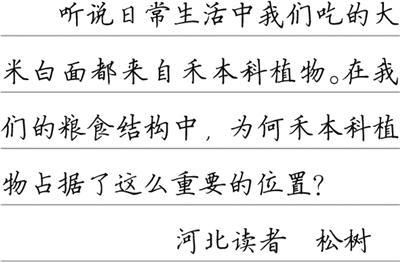 听说日常生活中我们吃的大
米白面都来自禾本科植物。在我
们的粮食结构中，为何禾本科植
物占据了这么重要的位置?
河北读者　松树